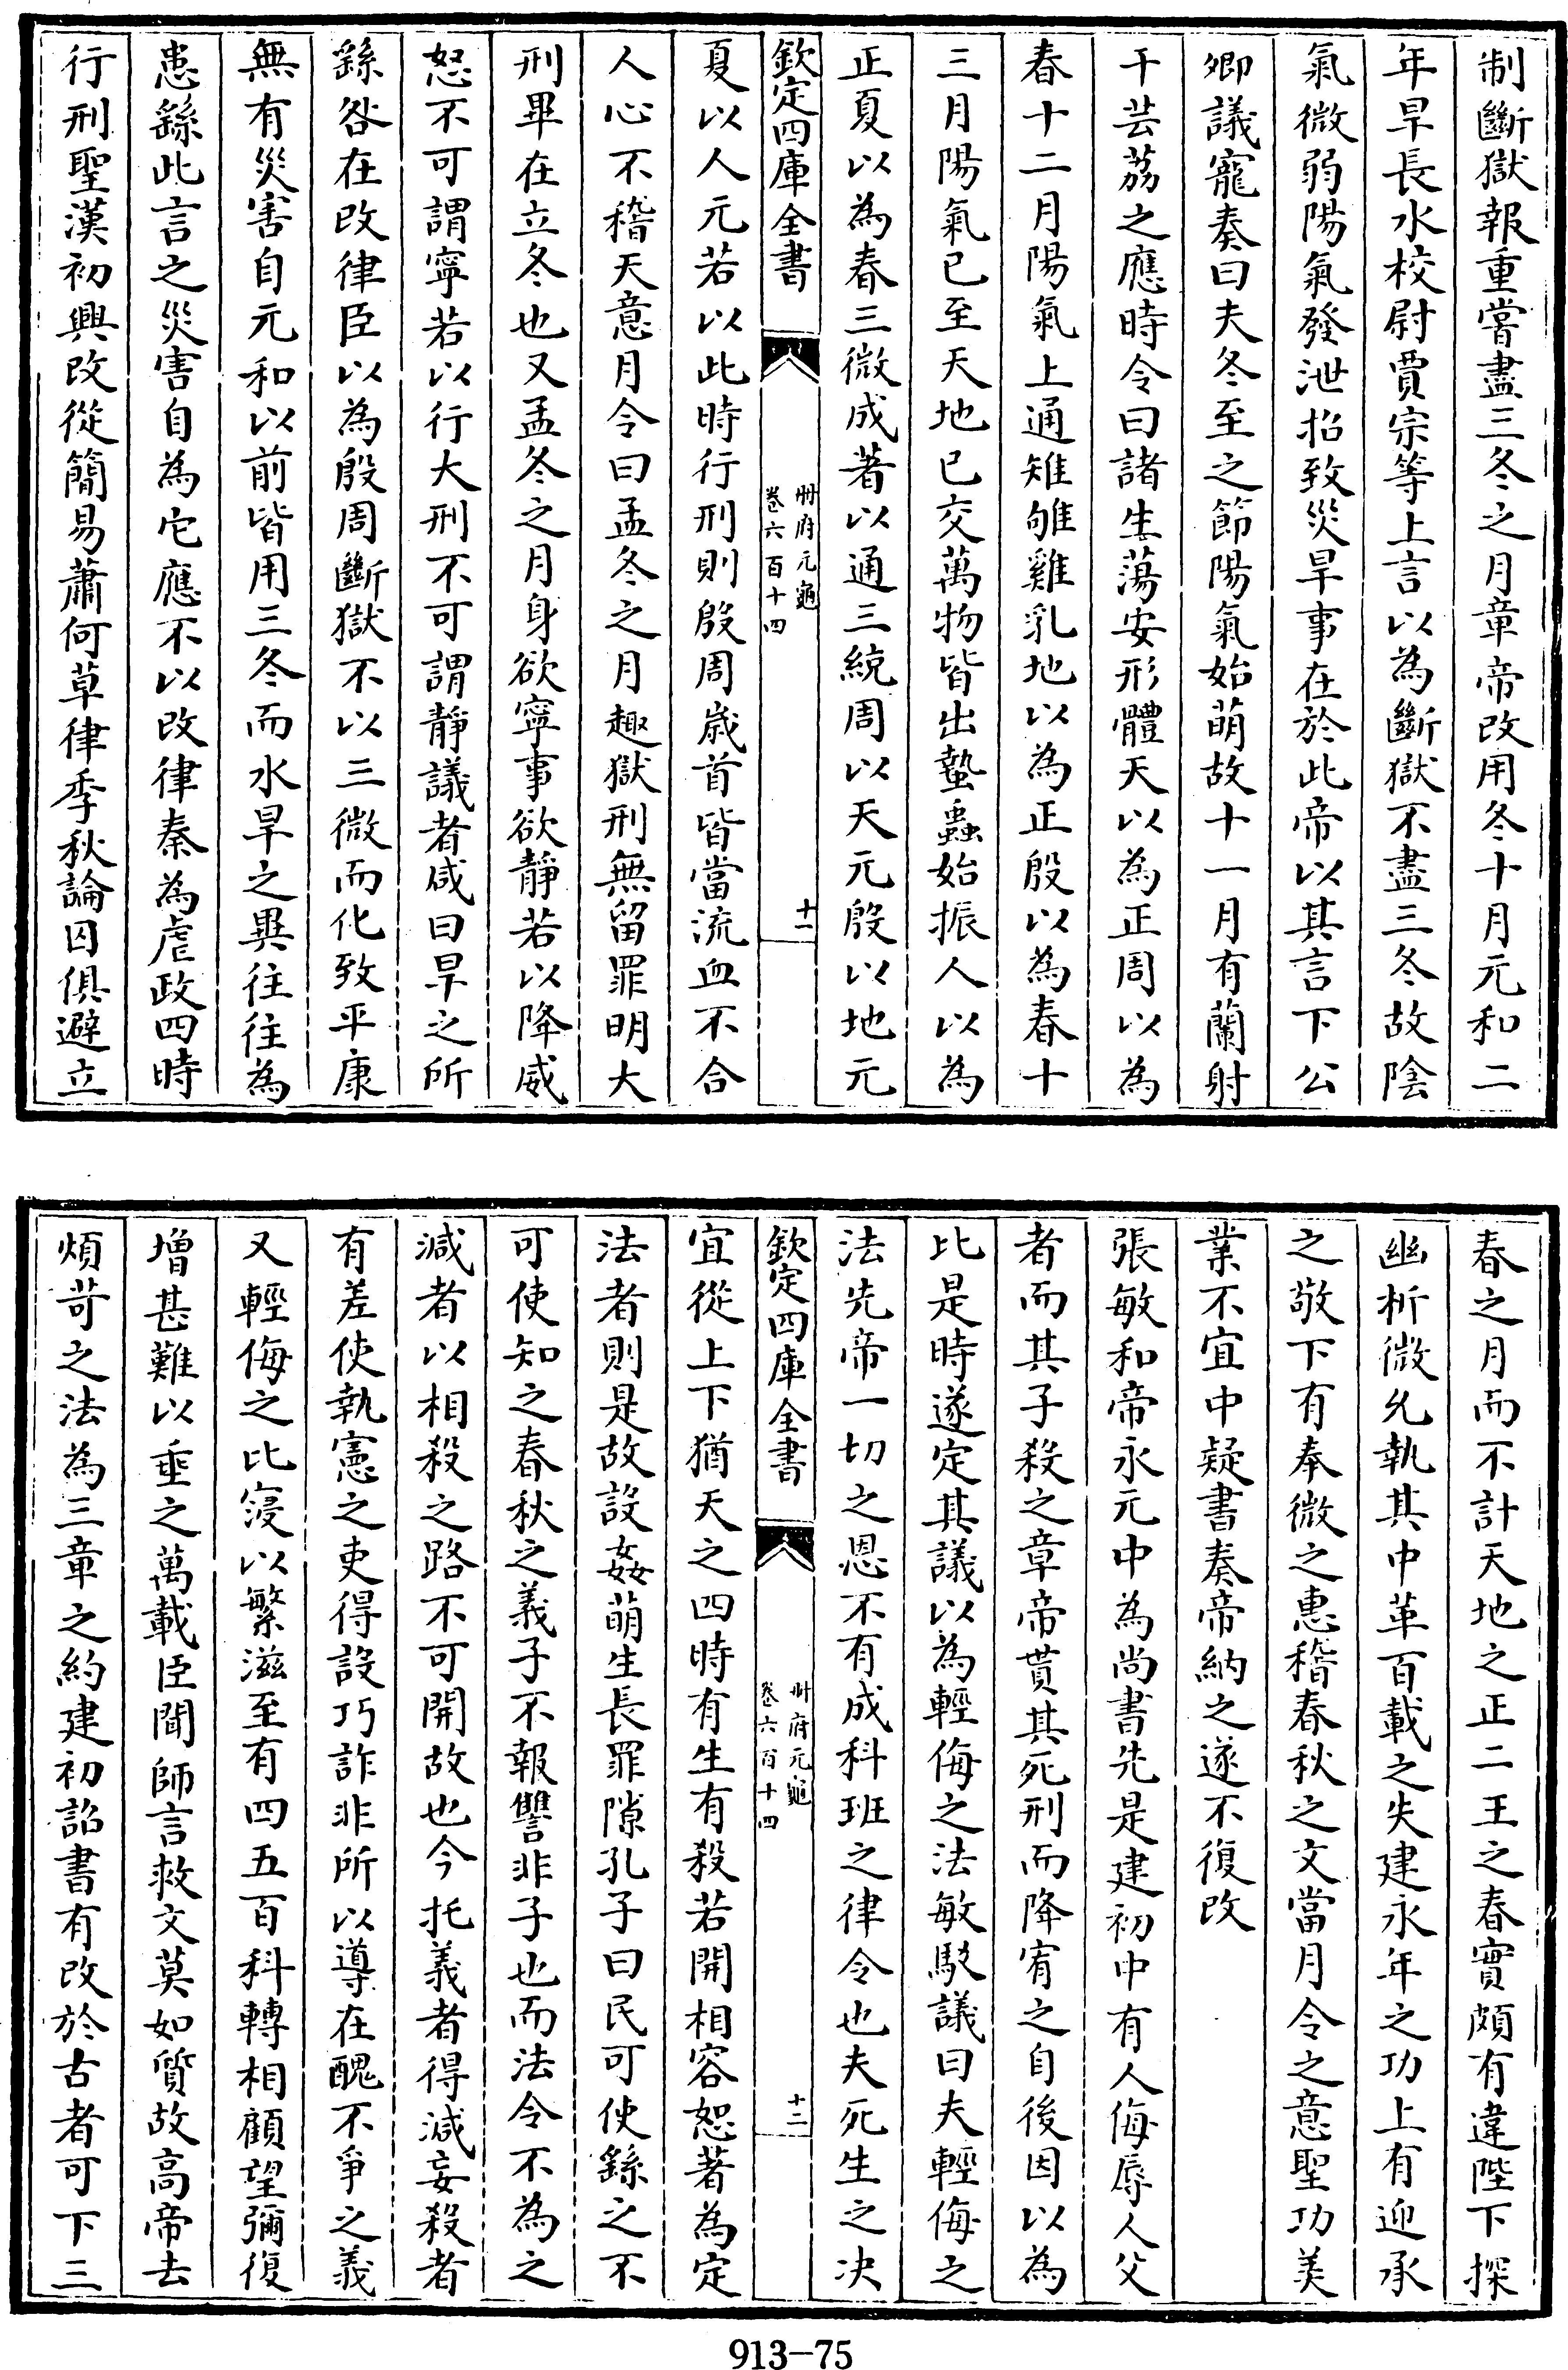 制斷獄報重嘗盡三冬之月章帝改用冬十月元和二
年旱長水校尉賈宗等上言以為斷獄不盡三冬故陰
氣微弱陽氣發泄招致災旱事在於此帝以其言下公
卿議寵奏曰夫冬至之節陽氣始萌故十一月有蘭射
干芸荔之應時令曰諸生蕩安形體天以為正周以為
春十二月陽氣上通雉雊雞乳地以為正殷以為春十
三月陽氣已至天地已交萬物皆出蟄蟲始振人以為
正夏以為春三微成著以通三統周以天元殷以地元
欽定四庫全書
冊府元龜
卷六百十四
十一
夏以人元若以此時行刑則殷周歲首皆當流血不合
人心不稽天意月令曰孟冬之月趣獄刑無留罪明大
刑畢在立冬也又孟冬之月身欲寧事欲靜若以降威
怒不可謂寧若以行大刑不可謂靜議者咸曰旱之所
繇咎在改律臣以為殷周斷獄不以三微而化致平康
無有災害自元和以前皆用三冬而水旱之異往往為
患繇此言之災害自為它應不以改律秦為虐政四時
行刑聖漢初興改從簡易蕭何草律季秋論囚俱避立
春之月而不計天地之正二王之春實頗有違陛下探
幽析微允執其中革百載之失建永年之功上有迎承
之敬下有奉微之惠稽春秋之文當月令之意聖功美
業不宜中疑書奏帝納之遂不復改
張敏和帝永元中為尚書先是建初中有人侮辱人父
者而其子殺之章帝貰其死刑而降宥之自後因以為
比是時遂定其議以為輕侮之法敏駮議曰夫輕侮之
法先帝一切之恩不有成科班之律令也夫死生之决
欽定四庫全書
冊府元龜
卷六百十四
十二
宜從上下猶天之四時有生有殺若開相容恕著為定
法者則是故設姦萌生長罪隙孔子曰民可使繇之不
可使知之春秋之義子不報讐非子也而法令不為之
減者以相殺之路不可開故也今托義者得減妄殺者
有差使執憲之吏得設巧詐非所以導在醜不爭之義
又輕侮之比寖以繁滋至有四五百科轉相顧望彌復
增甚難以垂之萬載臣聞師言救文莫如質故高帝去
煩苛之法為三章之約建初詔書有改於古者可下三
913-75